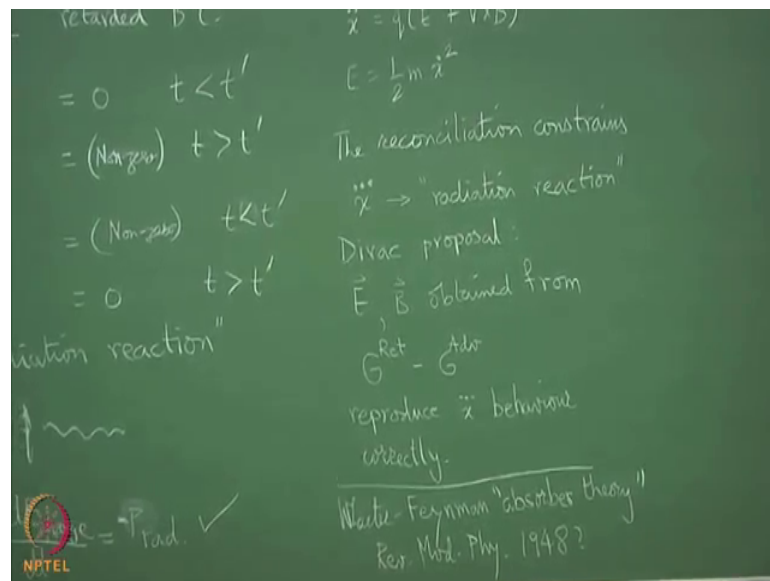 retarded BC.
= 0 t < t'
= (Non-zero) t > t'
= (Non-zero) t < t'
= 0 t > t'
iation reaction"
= -Prad. ✓
ẍ = q(E + V×B)
E = 1/2 m ẋ²
The reconciliation constrains
x⃛ → "radiation reaction"
Dirac proposal :
E⃗, B⃗ obtained from
G^Ret - G^Adv
reproduce x⃛ behaviour
correctly.
-Feynman "absorber theory"
Rev. Mod. Phy. 1948?
NPTEL